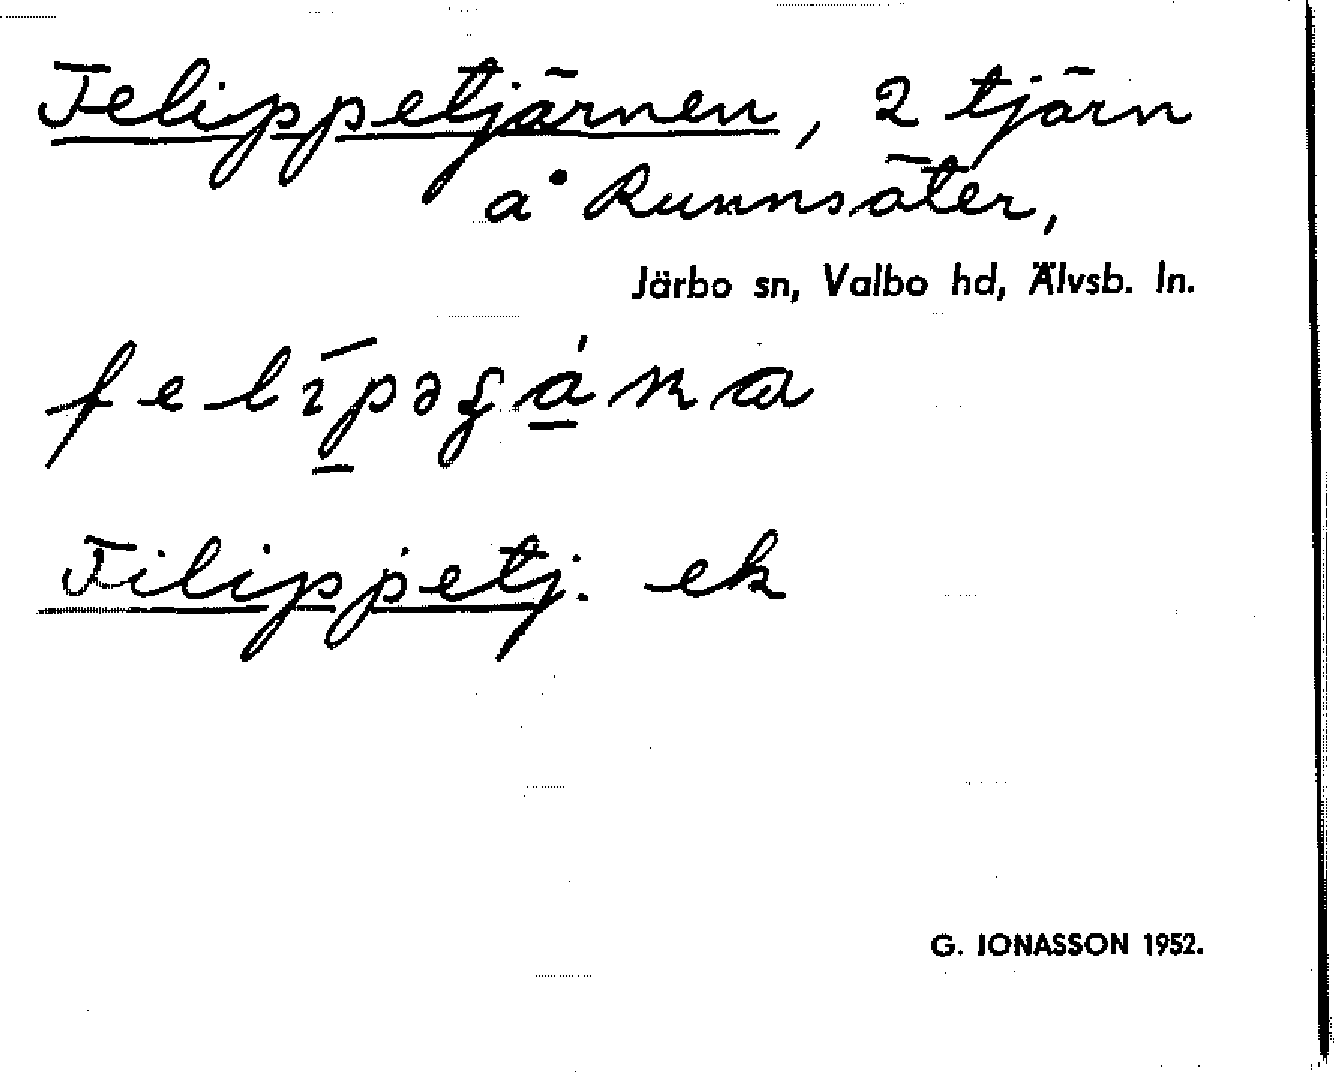 Felippetjärnen, 2 tjärn
å Runnsäter,
Järbo sn, Valbo hd, Älvsb. ln.
Filippetj. ek
G. JONASSON 1952.